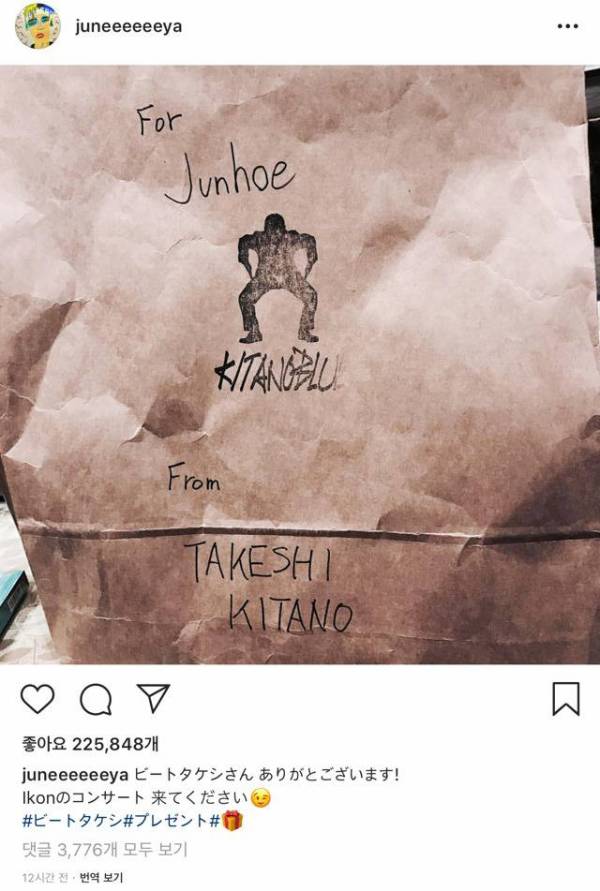 juneeeeeeya
For
Junhoe
KITANOBLUE
From
TAKESHI
KITANO
좋아요 225,848개
juneeeeeeya ビートタケシさん ありがとございます!
Ikonのコンサート 来てください😉
#ビートタケシ#プレゼント#🎁
댓글 3,776개 모두 보기
12시간 전 · 번역 보기